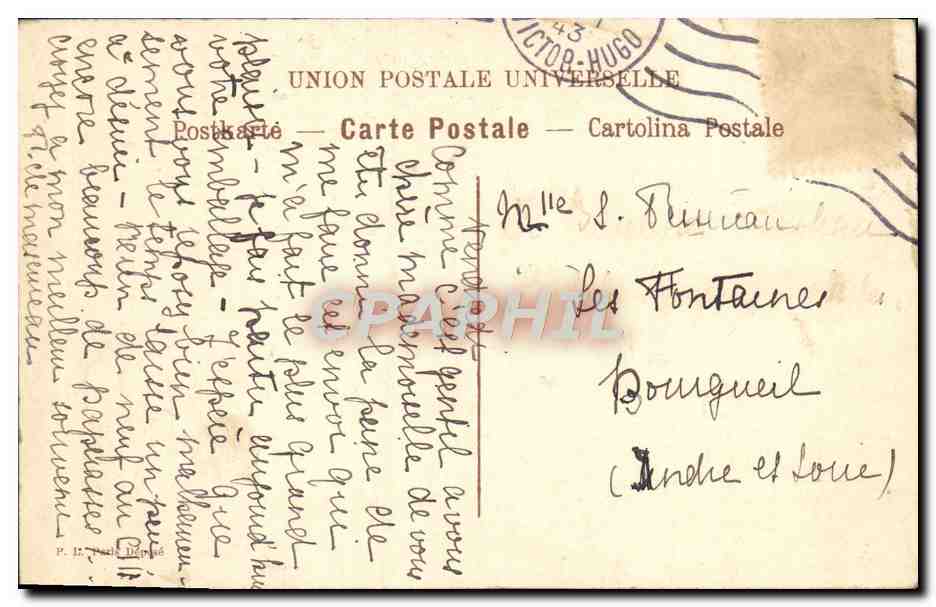 43
ICTOR-HUGO
UNION POSTALE UNIVERSELLE
Postkarte — Carte Postale — Cartolina Postale
Mlle S.
Les Fontaines
Bourgueil
(Indre et Loire)
Vendredi
Comme c'est gentil a vous
chère mademoiselle de vous
être donné la peine de
me faire cet envoi qui
m'a fait le plus grand
plaisir - Je fais partir aujourd'hui
votre emballage - J'espère que
vous vous reposez bien malheureu-
sement le temps laisse un peu
a désirer - Rien de neuf au
encore beaucoup de paperasses !
croyez a mon meilleur souvenir
P. L. Paris Déposé
CPAPHIL